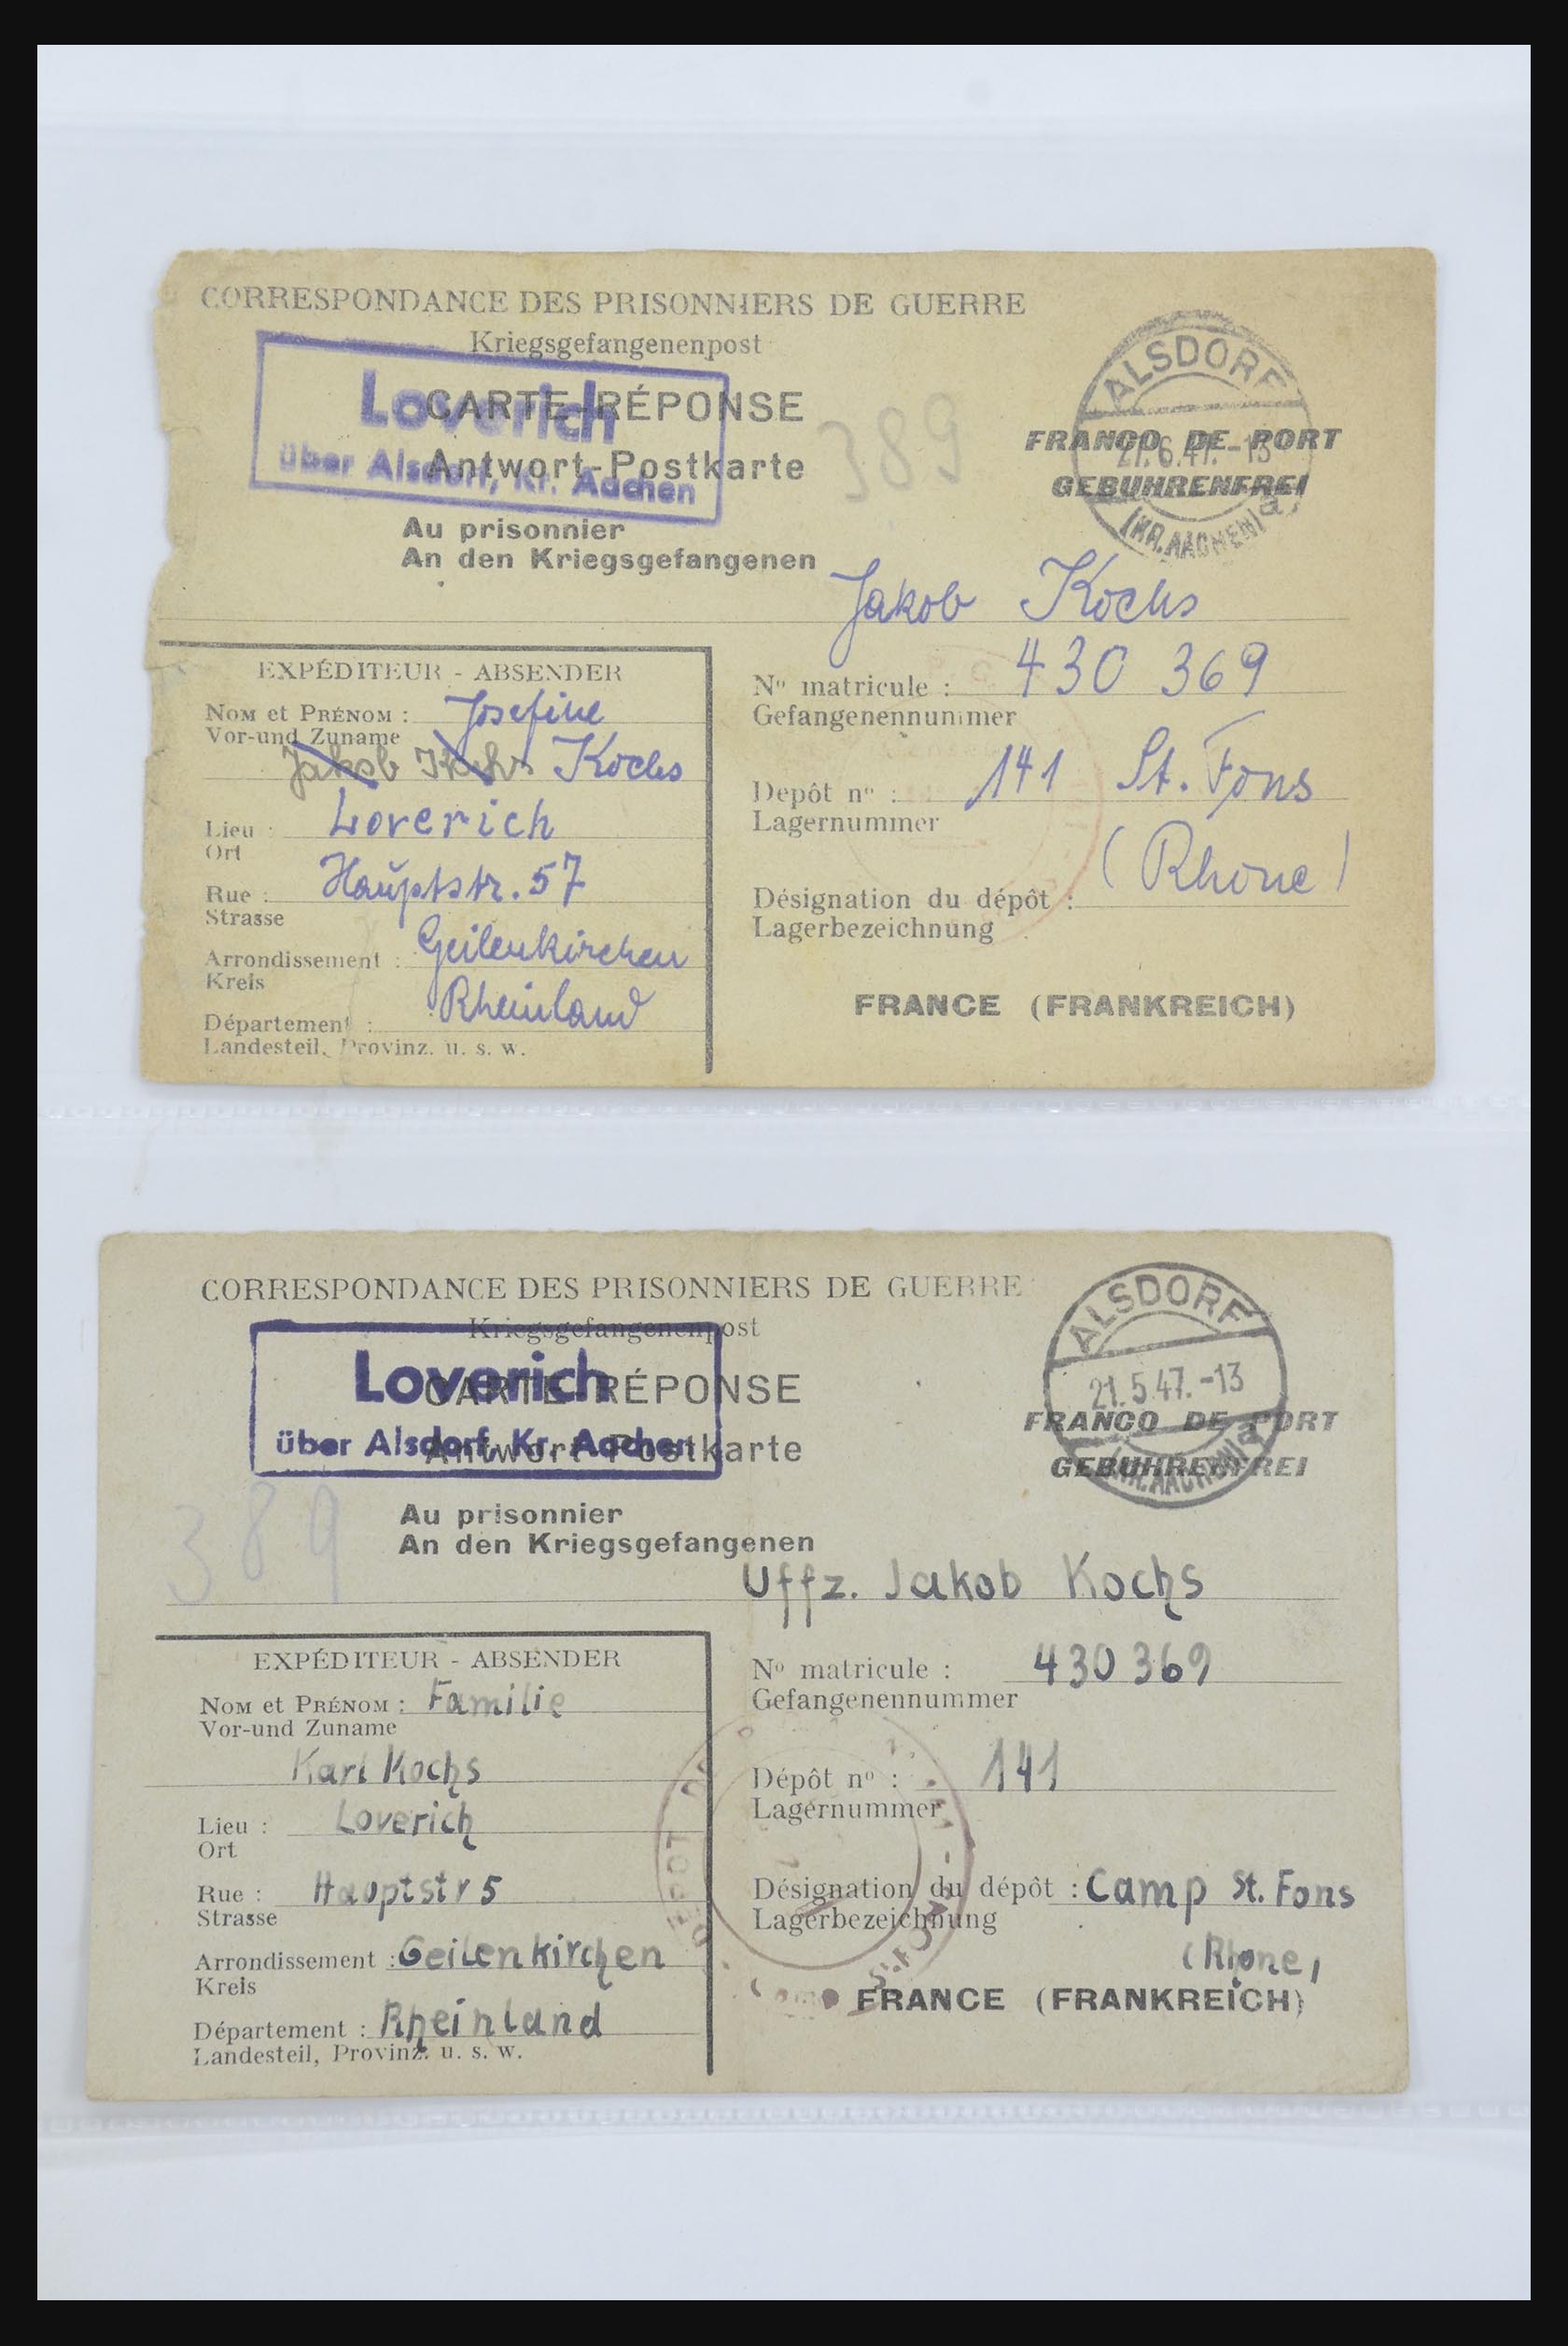 CORRESPONDANCE DES PRISONNIERS DE GUERRE
Kriegsgefangenenpost
Loverich
über Alsdorf, Kr. Aachen
CARTE-RÉPONSE
Antwort-Postkarte
389
ALSDORF
(KR. AACHEN) a
FRANCO DE PORT
GEBUHRENFREI
Au prisonnier
An den Kriegsgefangenen
Jakob Kochs
EXPÉDITEUR - ABSENDER
NOM et PRÉNOM : Josefine
Vor-und Zuname
Jakob Kochs Kochs
Lieu : Loverich
Ort
Rue : Hauptstr. 57
Strasse
Arrondissement : Geilenkirchen
Kreis
Département : Rheinland
Landesteil, Provinz. u. s. w.
No matricule : 430 369
Gefangenennummer
Depôt no : 141 St. Fons
Lagernummer
(Rhone)
Désignation du dépôt :
Lagerbezeichnung
FRANCE (FRANKREICH)
CORRESPONDANCE DES PRISONNIERS DE GUERRE
Kriegsgefangenenpost
Loverich
über Alsdorf, Kr. Aachen
CARTE-RÉPONSE
Antwort-Postkarte
389
ALSDORF
21.5.47.-13
(KR. AACHEN) a
FRANCO DE PORT
GEBUHRENFREI
Au prisonnier
An den Kriegsgefangenen
Uffz. Jakob Kochs
EXPÉDITEUR - ABSENDER
NOM et PRÉNOM : Familie
Vor-und Zuname
Karl Kochs
Lieu : Loverich
Ort
Rue : Hauptstr 5
Strasse
Arrondissement : Geilenkirchen
Kreis
Département : Rheinland
Landesteil, Provinz. u. s. w.
No matricule : 430369
Gefangenennummer
Dépôt no : 141
Lagernummer
Désignation du dépôt : Camp St. Fons
Lagerbezeichnung
(Rhone)
FRANCE (FRANKREICH)